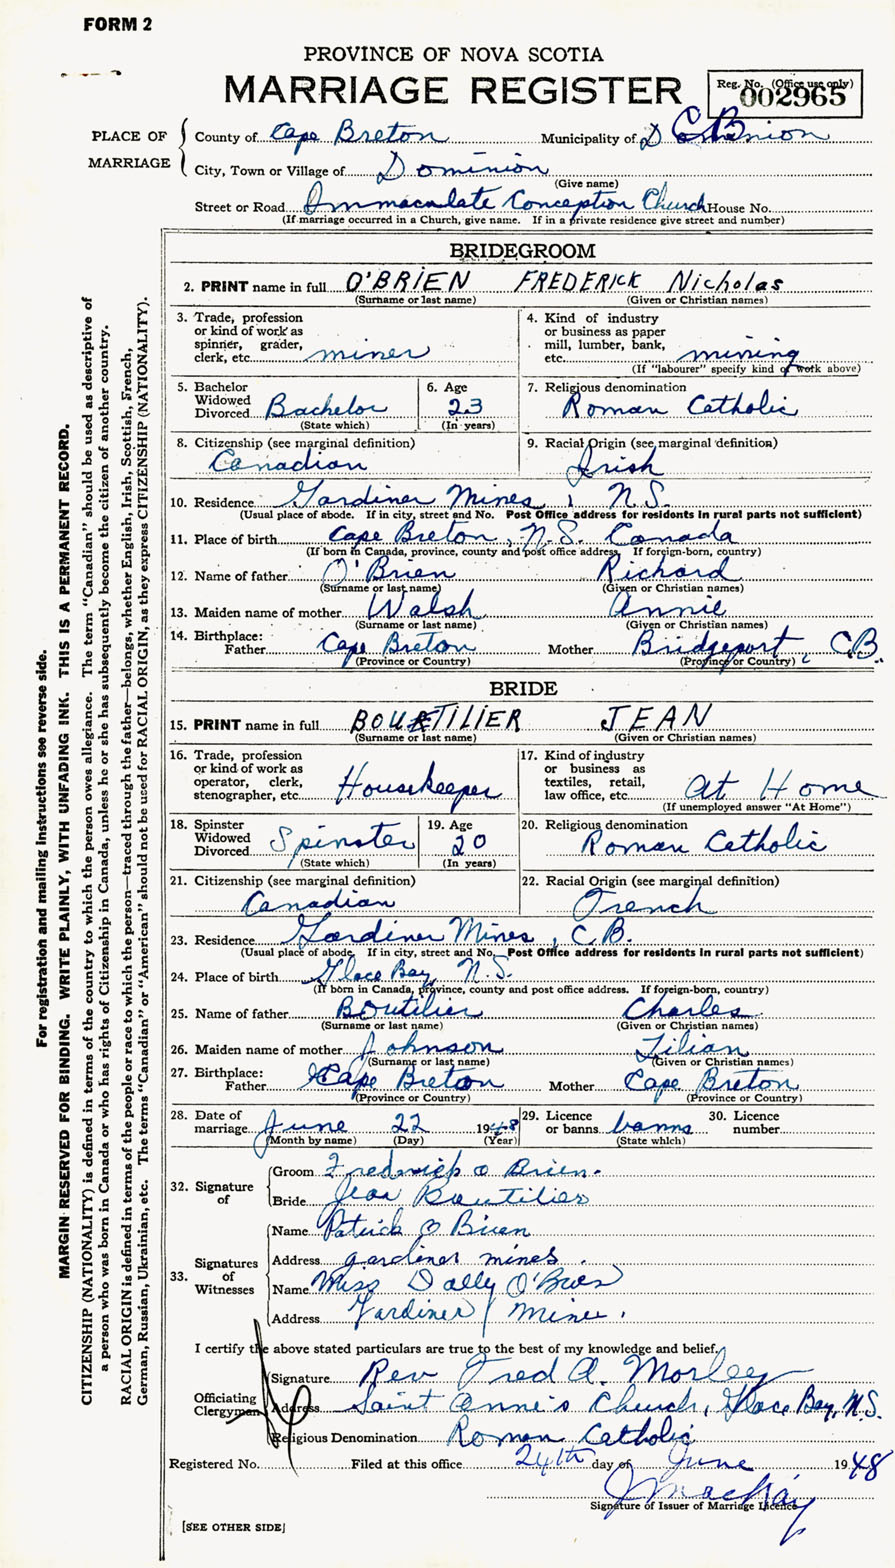 FORM 2
PROVINCE OF NOVA SCOTIA
MARRIAGE REGISTER
Reg. No. (Office use only)
002965
PLACE OF MARRIAGE
County of Cape Breton Municipality of Dominion C B
City, Town or Village of Dominion
(Give name)
Street or Road Immaculate Conception Church House No.
(If marriage occurred in a Church, give name. If in a private residence give street and number)
BRIDEGROOM
2. PRINT name in full O'BRIEN FREDERICK Nicholas
(Surname or last name) (Given or Christian names)
3. Trade, profession or kind of work as spinner, grader, clerk, etc. miner
4. Kind of industry or business as paper mill, lumber, bank, etc. mining
(If "labourer" specify kind of work above)
5. Bachelor Widowed Divorced Bachelor
(State which)
6. Age 23
(In years)
7. Religious denomination Roman Catholic
8. Citizenship (see marginal definition) Canadian
9. Racial Origin (see marginal definition) Irish
10. Residence Gardiner Mines, N.S.
(Usual place of abode. If in city, street and No. Post Office address for residents in rural parts not sufficient)
11. Place of birth Cape Breton, N.S. Canada
(If born in Canada, province, county and post office address. If foreign-born, country)
12. Name of father O'Brien Richard
(Surname or last name) (Given or Christian names)
13. Maiden name of mother Walsh Annie
(Surname or last name) (Given or Christian names)
14. Birthplace:
Father Cape Breton Mother Bridgeport, C.B.
(Province or Country) (Province or Country)
BRIDE
15. PRINT name in full BOUTILIER JEAN
(Surname or last name) (Given or Christian names)
16. Trade, profession or kind of work as operator, clerk, stenographer, etc. Housekeeper
17. Kind of industry or business as textiles, retail, law office, etc. At Home
(If unemployed answer "At Home")
18. Spinster Widowed Divorced Spinster
(State which)
19. Age 20
(In years)
20. Religious denomination Roman Catholic
21. Citizenship (see marginal definition) Canadian
22. Racial Origin (see marginal definition) French
23. Residence Gardiner Mines, C.B.
(Usual place of abode. If in city, street and No. Post Office address for residents in rural parts not sufficient)
24. Place of birth Glace Bay, N.S.
(If born in Canada, province, county and post office address. If foreign-born, country)
25. Name of father Boutilier Charles
(Surname or last name) (Given or Christian names)
26. Maiden name of mother Johnson Lilian
(Surname or last name) (Given or Christian names)
27. Birthplace:
Father Cape Breton Mother Cape Breton
(Province or Country) (Province or Country)
28. Date of marriage June 22 1948
(Month by name) (Day) (Year)
29. Licence or banns banns
(State which)
30. Licence number
32. Signature of
Groom Fredrick O Brien.
Bride Jean Boutilier
33. Signatures of Witnesses
Name Patrick O Brien
Address gardiner mines.
Name Miss Dolly O'Brien
Address Gardiner Mines.
I certify the above stated particulars are true to the best of my knowledge and belief.
Officiating Clergyman
Signature Rev Fred A. Morley
Address Saint Anne's Church, Glace Bay, N.S.
Religious Denomination Roman Catholic
Registered No. Filed at this office 24th day of June 1948
J MacKay
Signature of Issuer of Marriage Licence
[SEE OTHER SIDE]
For registration and mailing instructions see reverse side.
MARGIN RESERVED FOR BINDING. WRITE PLAINLY, WITH UNFADING INK. THIS IS A PERMANENT RECORD.
CITIZENSHIP (NATIONALITY) is defined in terms of the country to which the person owes allegiance. The term "Canadian" should be used as descriptive of
a person who was born in Canada or who has rights of Citizenship in Canada, unless he or she has subsequently become the citizen of another country.
RACIAL ORIGIN is defined in terms of the people or race to which the person—traced through the father—belongs, whether English, Irish, Scottish, French,
German, Russian, Ukrainian, etc. The terms "Canadian" or "American" should not be used for RACIAL ORIGIN, as they express CITIZENSHIP (NATIONALITY).